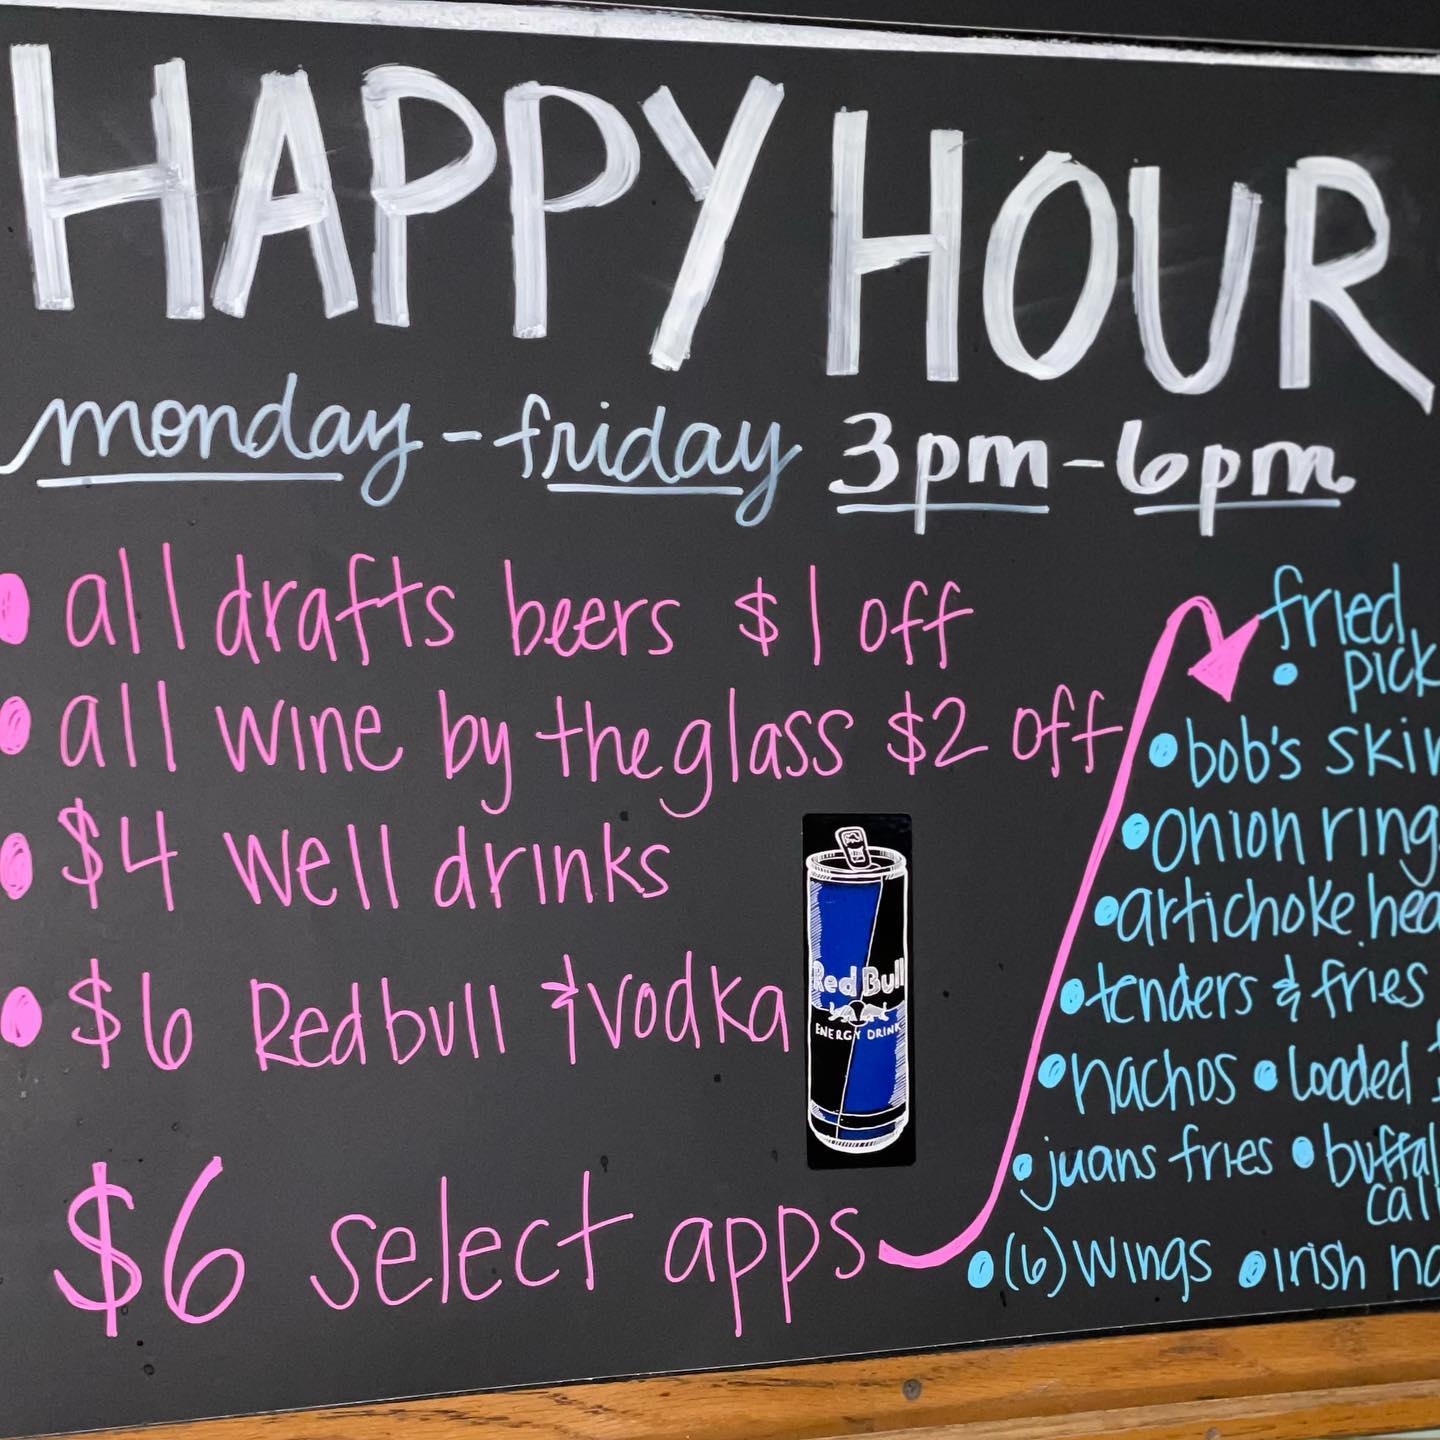 HAPPY HOUR
monday - friday 3pm - 6pm
• all drafts beers $1 off
• all wine by the glass $2 off
• $4 well drinks
• $6 Redbull & vodka
Red Bull
ENERGY DRINK
$6 select apps
fried
• pick
• bob's skin
• onion rings
• artichoke hea
• tenders & fries
• nachos • loaded f
• juans fries • buffal
cali
• (6) wings • irish na